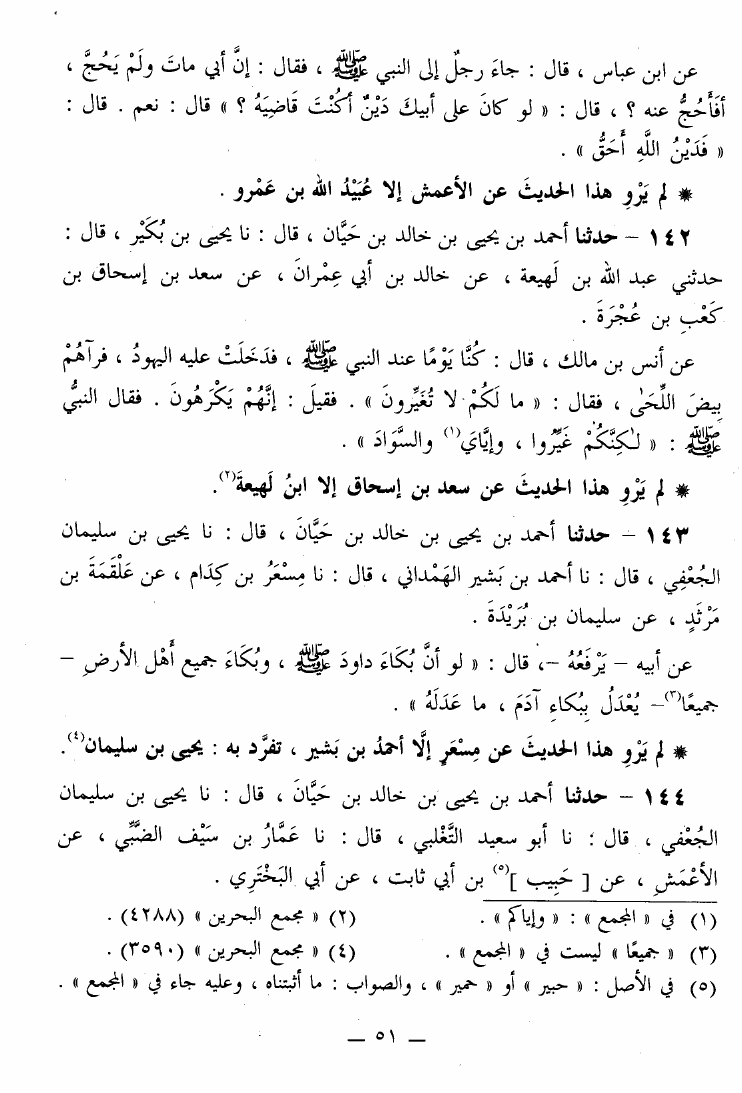 عن ابن عباس ، قال : جاءَ رجلٌ إلى النبي ﷺ ، فقال : إنَّ أبي ماتَ ولَمْ يَحُجَّ ،
أفَأَحُجُّ عنه ؟ ، قال : « لو كانَ على أبيكَ دَيْنٌ أكُنْتَ قَاضِيَهُ ؟ » قال : نعم . قال :
« فَدَيْنُ اللَّهِ أَحَقُّ » .
* لم يَرْوِ هذا الحديثَ عن الأعمش إلا عُبَيْدُ الله بن عَمْرو .
١٤٢ – حدثنا أحمد بن يحيى بن خالد بن حَيَّان ، قال : نا يحيى بن بُكَيْر ، قال :
حدثني عبد الله بن لَهيعة ، عن خالد بن أبي عِمْرانَ ، عن سعد بن إسحاق بن
كَعْبِ بن عُجْرَةَ .
عن أنس بن مالك ، قال : كُنَّا يَوْمًا عند النبي ﷺ ، فدَخَلَتْ عليه اليهودُ ، فرآهُمْ
بِيضَ اللِّحَىٰ ، فقال : « ما لَكُمْ لا تُغَيِّرونَ » . فقيلَ : إنَّهُمْ يَكْرَهُونَ . فقال النبيُّ
ﷺ : « لٰكِنَّكُمْ غَيِّروا ، وإيَّايَ(١) والسَّوَادَ » .
* لم يَرْوِ هذا الحديثَ عن سعد بن إسحاق إلا ابنُ لَهيعةَ(٢).
١٤٣ – حدثنا أحمد بن يحيى بن خالد بن حَيَّانَ ، قال : نا يحيى بن سليمان
الجُعْفِي ، قال : نا أحمد بن بَشير الهَمْداني ، قال : نا مِسْعَرُ بن كِدَام ، عن عَلْقَمَةَ بن
مَرْثَدٍ ، عن سليمان بن بُرَيْدَةَ .
عن أبيه – يَرْفَعُهُ –، قال : « لو أنَّ بُكَاءَ داودَ ﷺ ، وبُكَاءَ جميع أَهْل الأرضِ –
جميعًا(٣)– يُعْدَلُ بِبُكاءِ آدَمَ ، ما عَدَلَهُ » .
* لم يَرْوِ هذا الحديثَ عن مِسْعَرٍ إلَّا أحمدُ بن بَشير ، تفرَّد به : يحيى بن سليمان(٤).
١٤٤ – حدثنا أحمد بن يحيى بن خالد بن حَيَّانَ ، قال : نا يحيى بن سليمان
الجُعْفي ، قال : نا أبو سعيد التَّغْلبي ، قال : نا عَمَّارُ بن سَيْف الضَّبِّي ، عن
الأعْمَشِ ، عن [ حَبِيب ](٥) بن أبي ثابت ، عن أبي البَخْتَرِي .
(١) في « المجمع » : « وإياكم » . (٢) « مجمع البحرين » (٤٢٨٨) .
(٣) « جميعًا » ليست في « المجمع » . (٤) « مجمع البحرين » (٣٥٩٠) .
(٥) في الأصل : « حبير » أو « حمير » ، والصواب : ما أثبتناه ، وعليه جاء في « المجمع » .
– ٥١ –